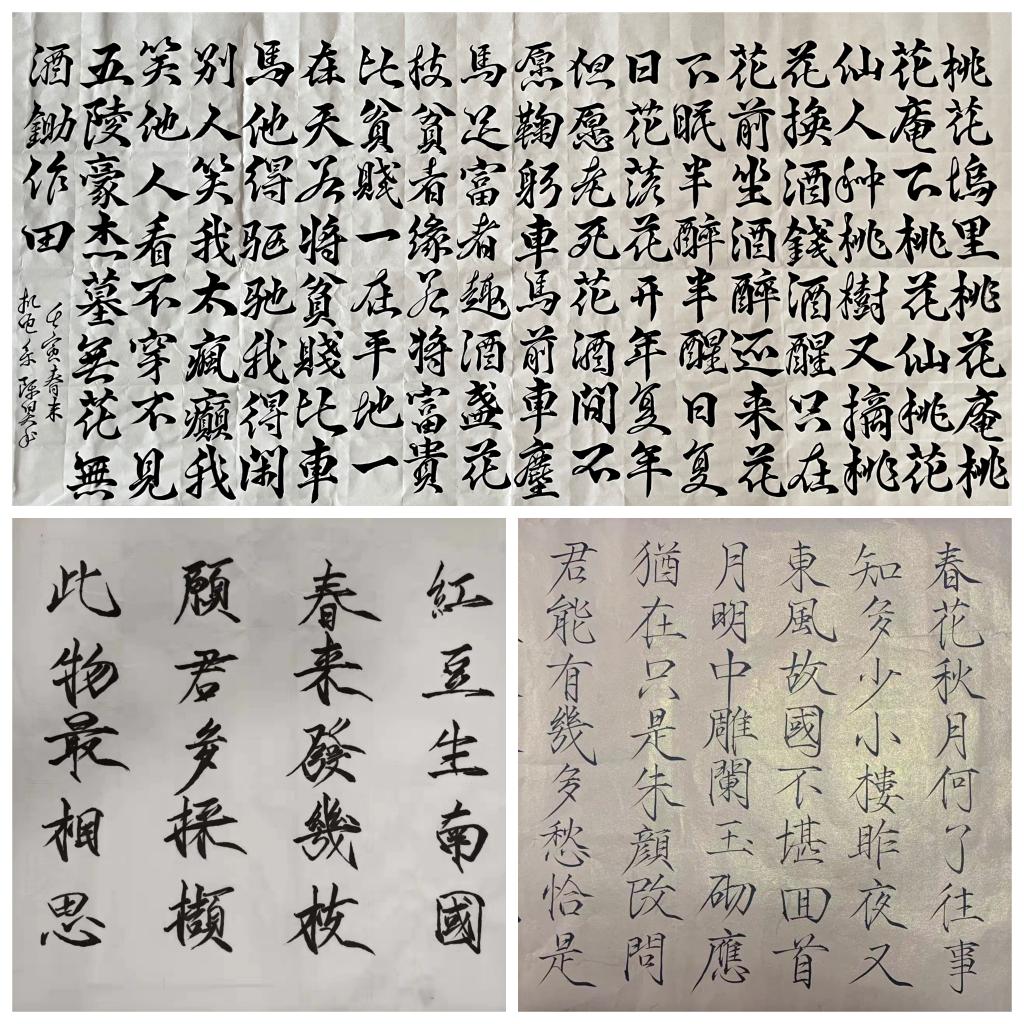 桃花塢里桃花庵桃
花庵下桃花仙桃花
仙人种桃樹又摘桃
花換酒錢酒醒只在
花前坐酒醉还来花
下眠半醉半醒日复
日花落花开年复年
但愿老死花酒間不
愿鞠躬車馬前車塵
馬足富者趣酒盞花
枝貧者緣若将富貴
比貧賤一在平地一
在天若将貧賤比車
馬他得驱馳我得闲
别人笑我太瘋癲我
笑他人看不穿不見
五陵豪杰墓無花無
酒鋤作田
壬寅春末
机电系陈
紅豆生南國
春来發幾枝
願君多採擷
此物最相思
春花秋月何了往事
知多少小樓昨夜又
東風故國不堪回首
月明中雕闌玉砌應
猶在只是朱顔改問
君能有幾多愁恰是